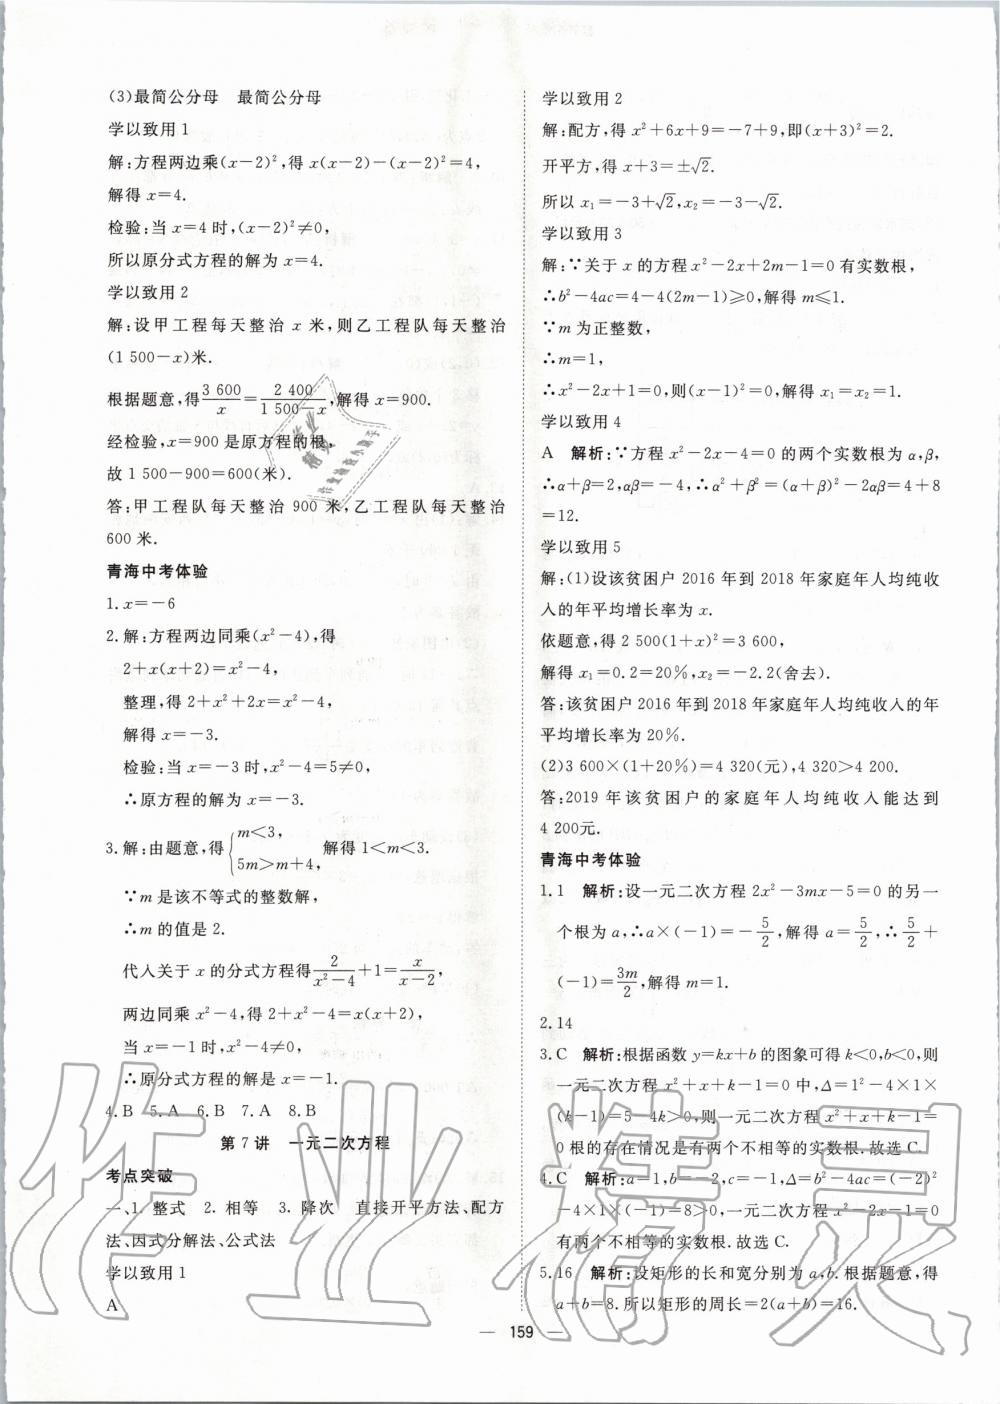 (3)最简公分母　最简公分母
学以致用1
解:方程两边乘(x－2)²,得x(x－2)－(x－2)²＝4,
解得x＝4.
检验:当x＝4时,(x－2)²≠0,
所以原分式方程的解为x＝4.
学以致用2
解:设甲工程每天整治x米,则乙工程队每天整治
(1 500－x)米.
根据题意,得3 600/x＝2 400/(1 500－x),解得x＝900.
经检验,x＝900是原方程的根,
故1 500－900＝600(米).
答:甲工程队每天整治900米,乙工程队每天整治
600米.
青海中考体验
1.x＝－6
2.解:方程两边同乘(x²－4),得
2＋x(x＋2)＝x²－4,
整理,得2＋x²＋2x＝x²－4,
解得x＝－3.
检验:当x＝－3时,x²－4＝5≠0,
∴原方程的解为x＝－3.
3.解:由题意,得{m＜3, 5m＞m＋4, 解得1＜m＜3.
∵m是该不等式的整数解,
∴m的值是2.
代入关于x的分式方程得2/(x²－4)＋1＝x/(x－2),
两边同乘x²－4,得2＋x²－4＝x(x＋2),
当x＝－1时,x²－4≠0,
∴原分式方程的解是x＝－1.
4.B　5.A　6.B　7.A　8.B
第7讲　一元二次方程
考点突破
一、1. 整式　2. 相等　3. 降次　直接开平方法、配方
法、因式分解法、公式法
学以致用1
A
学以致用2
解:配方,得x²＋6x＋9＝－7＋9,即(x＋3)²＝2.
开平方,得x＋3＝±√2.
所以x₁＝－3＋√2,x₂＝－3－√2.
学以致用3
解:∵关于x的方程x²－2x＋2m－1＝0有实数根,
∴b²－4ac＝4－4(2m－1)≥0,解得m≤1.
∵m为正整数,
∴m＝1,
∴x²－2x＋1＝0,则(x－1)²＝0,解得x₁＝x₂＝1.
学以致用4
A　解析:∵方程x²－2x－4＝0的两个实数根为α,β,
∴α＋β＝2,αβ＝－4,∴α²＋β²＝(α＋β)²－2αβ＝4＋8
＝12.
学以致用5
解:(1)设该贫困户2016年到2018年家庭年人均纯收
入的年平均增长率为x.
依题意,得2 500(1＋x)²＝3 600,
解得x₁＝0.2＝20%,x₂＝－2.2(舍去).
答:该贫困户2016年到2018年家庭年人均纯收入的年
平均增长率为20%.
(2)3 600×(1＋20%)＝4 320(元),4 320＞4 200.
答:2019年该贫困户的家庭年人均纯收入能达到
4 200元.
青海中考体验
1.1　解析:设一元二次方程2x²－3mx－5＝0的另一
个根为a,∴a×(－1)＝－5/2,解得a＝5/2,∴5/2＋
(－1)＝3m/2,解得m＝1.
2.14
3.C　解析:根据函数y＝kx＋b的图象可得k＜0,b＜0,则
一元二次方程x²＋x＋k－1＝0中,Δ＝1²－4×1×
(k－1)＝5－4k＞0,则一元二次方程x²＋x＋k－1＝
0根的存在情况是有两个不相等的实数根.故选C.
4.C　解析:a＝1,b＝－2,c＝－1,Δ＝b²－4ac＝(－2)²
－4×1×(－1)＝8＞0,一元二次方程x²－2x－1＝0
有两个不相等的实数根.故选C.
5.16　解析:设矩形的长和宽分别为a,b.根据题意,得
a＋b＝8.所以矩形的周长＝2(a＋b)＝16.
— 159 —
作业精灵